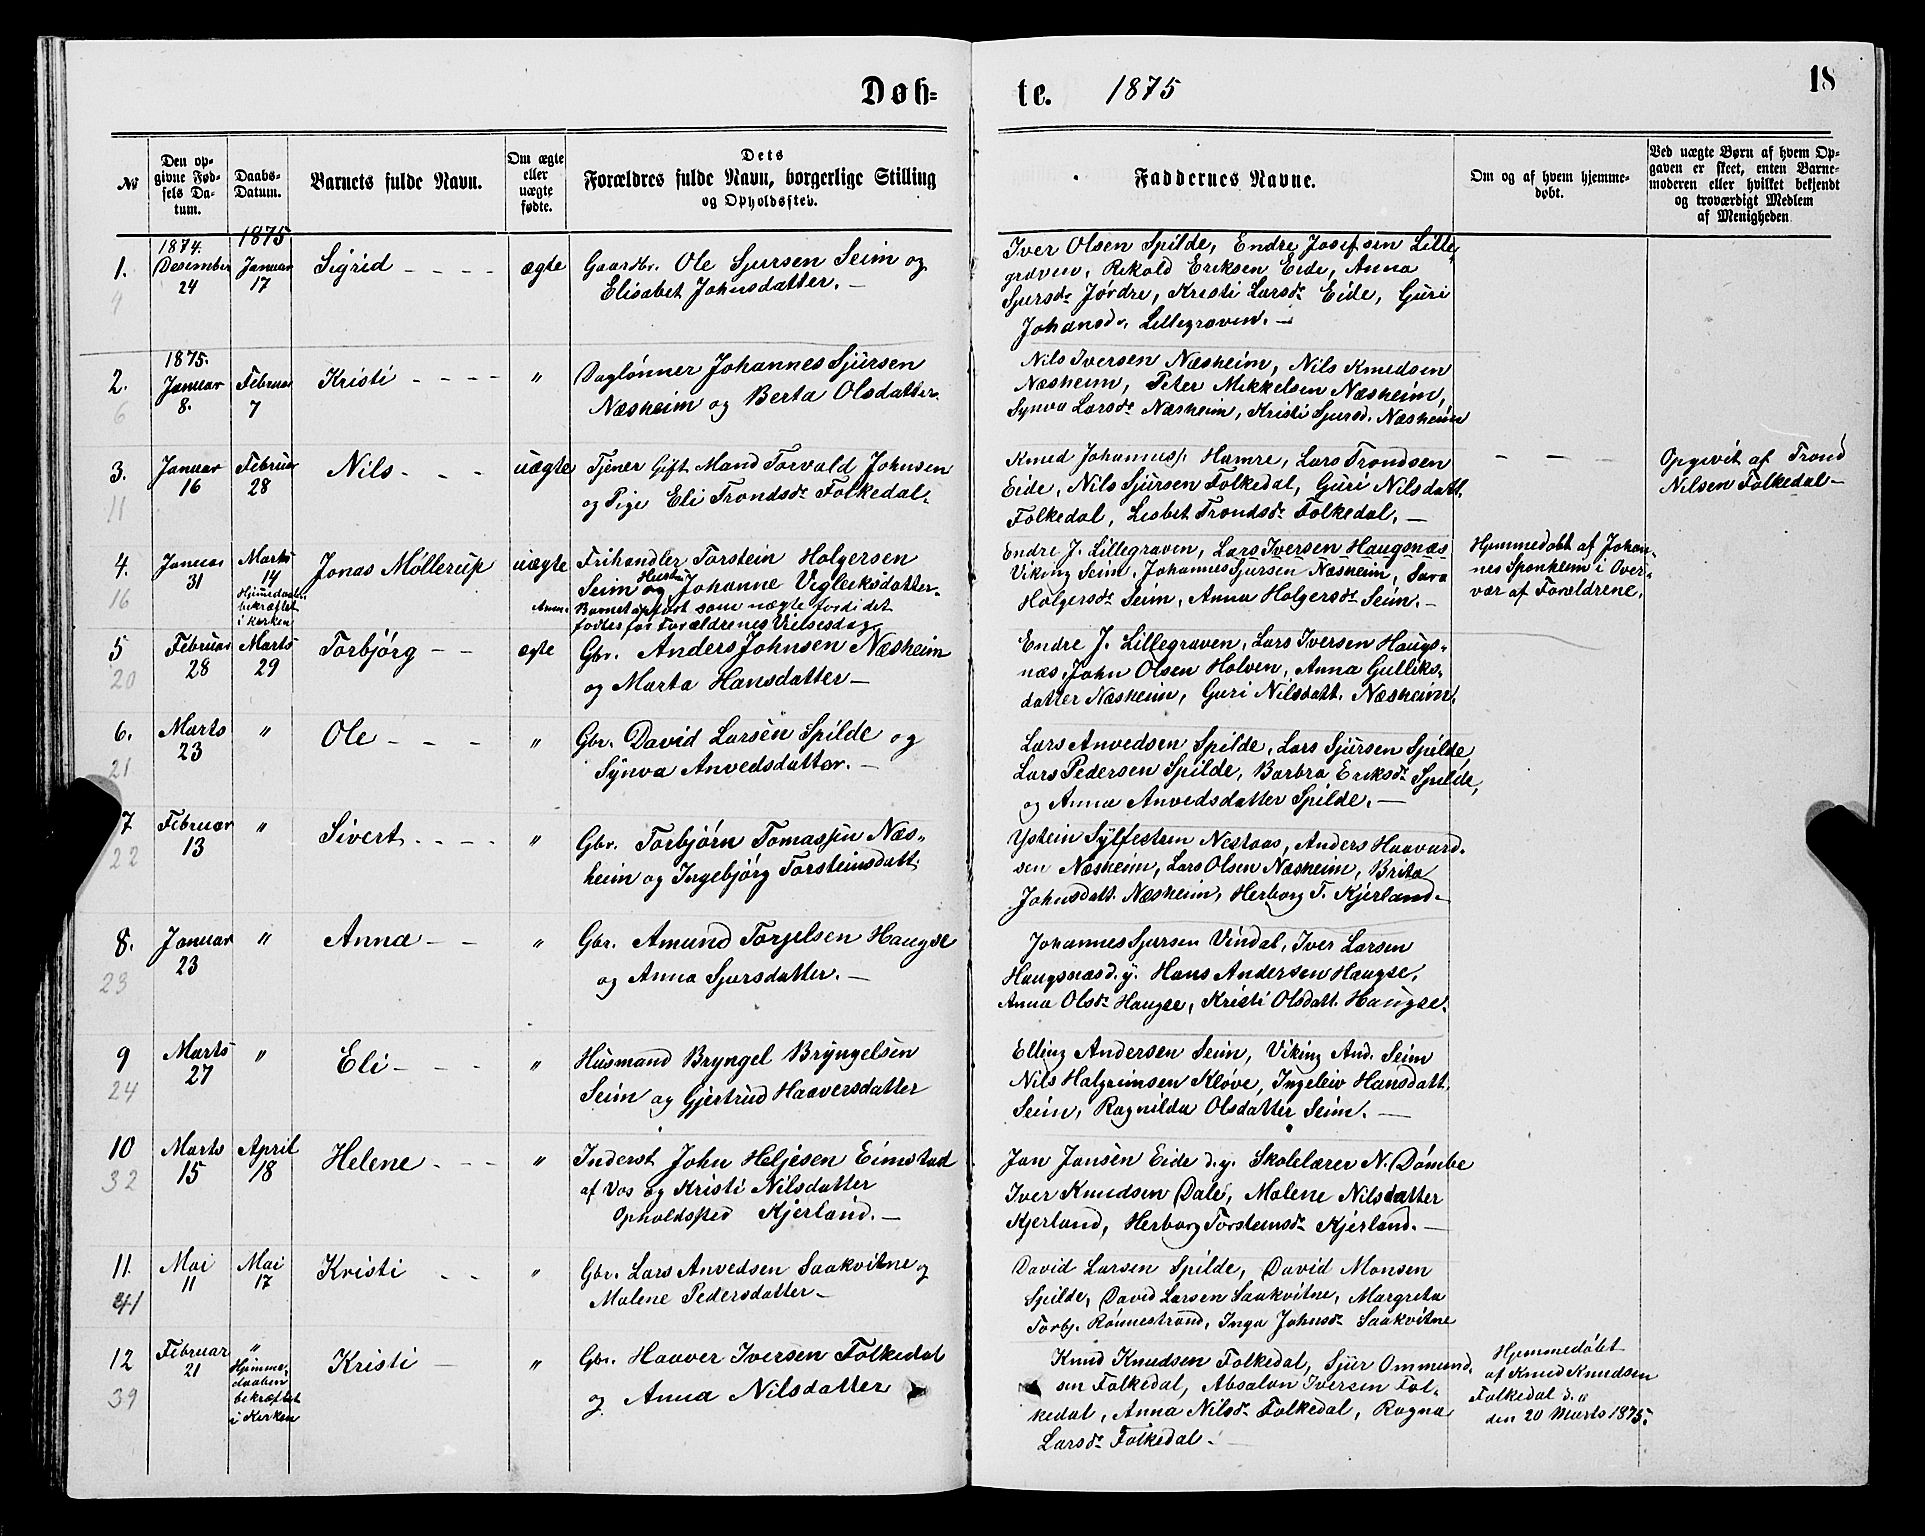 Døb=
te. 1875
18
No
Den op-
givne Fød-
sels Da-
tum.
Daabs-
Datum.
Barnets fulde Navn.
Om ægte
eller
uægte
fødte.
Dets
Forældres fulde Navn, borgerlige Stilling
og Opholdssted.
Faddernes Navne.
Om og af hvem hjemme-
døbt.
Ved uægte Børn af hvem Op-
gaven er skeet, enten Barne-
moderen eller hvilket bekjendt
og troværdigt Medlem
af Menigheden
1.
1874.
Desember
24
1875
Januar
17
Sigrid
ægte
Gaardbr. Ole Sjursen Seim og
Elisabet Johnsdatter. —
Iver Olsen Spilde, Endre Josefsen Lille-
graven, Rikold Eriksen Eide, Anna
Sjursdr Jørdre, Kristi Larsdr Eide, Guri
Johansd. Lillegraven. —
2.
6
1875.
Januar
8.
Februar
7
Kristi
"
Daglønner Johannes Sjursen
Næsheim og Berta Olsdatter.
Nils Iversen Næsheim, Nils Knudsen
Næsheim, Peter Mikkelsen Næsheim,
Synva Larsdr Næsheim, Kristi Sjursd. Næsheim
3.
11
Januar
16
Februar
28
Nils
uægte
Tjener Gift Mand Torvald Johnsen
og Pige Eli Trondsdr Folkedal.
Knud Johanness. Hamre, Lars Trondsen
Eide, Nils Sjursen Folkedal, Guri Nilsdatt.
Folkedal, Lisbet Trondsdr Folkedal. —
— — —
Opgivit af Trond
Nilsen Folkedal —
4.
16
Januar
31
Marts
14
Hjemmedaaben
bekræftet
i Kirken
Jonas Møllerup
uægte
Frihandler Torstein Holgersen
Seim og Hustru Johanne Vigleiksdatter.
Anm. Barnet opført som uægte fordi det
fødtes før Forældrenes Vielsesdag
Endre J. Lillegraven, Lars Iversen Haugsnæs
Viking Seim, Johannes Sjursen Næsheim, Sara
Holgersdr Seim, Anna Holgersdr Seim. —
Hjemmedøbt af Johan-
nes Sponheim i Over-
vær af Forældrene.
5
20
Februar
28
Marts
29
Torbjørg
ægte
Gbr. Anders Johnsen Næsheim
og Marta Hansdatter —
Endre J. Lillegraven, Lars Iversen Haugs-
næs, John Olsen Holven, Anna Gulliks-
datter Næsheim, Guri Nilsdatt. Næsheim.
6.
21
Marts
23
"
Ole
"
Gbr. David Larsen Spilde og
Synva Anvedsdatter. —
Lars Anvedsen Spilde, Lars Sjursen Spilde,
Lars Pedersen Spilde, Barbra Eriksdr Spilde,
og Anna Anvedsdatter Spilde. —
7
22
Februar
13
"
Sivert
"
Gbr. Torbjørn Tomassen Næs-
heim og Ingebjørg Torsteinsdatt.
Ystein Sylfestsen Nestaas, Anders Haavard-
sen Næsheim, Lars Olsen Næsheim, Brita
Johnsdatt. Næsheim, Herborg T. Kjerland.
8.
23
Januar
23
"
Anna
"
Gbr. Amund Torjelsen Haugse
og Anna Sjursdatter. —
Johannes Sjursen Vindal, Iver Larsen
Haugsnæs d. y. Hans Andersen Haugse,
Anna Olsdr Haugse, Kristi Olsdatt. Haugse.
9
24
Marts
27
"
Eli
"
Husmand Bryngel Bryngelsen
Seim og Gjertrud Haaversdatter
Elling Andersen Seim, Viking And. Seim
Nils Halgrimsen Kløve, Ingeleiv Hansdatt.
Seim, Ragnilda Olsdatter Seim. —
10
32
Marts
15
April
18
Helene
"
Inderst John Heljesen Eimstad
af Vos og Kristi Nilsdatter
Opholdssted Kjerland. —
Jan Jansen Eide d.y. Skolelærer N. Dømbe
Iver Knudsen Dale, Malene Nilsdatter
Kjerland, Herborg Torsteinsdr Kjerland. —
11.
41
Mai
11
Mai
17
Kristi
"
Gbr. Lars Anvedsen Saakvitne og
Malene Pedersdatter —
David Larsen Spilde, David Monsen
Spilde, David Larsen Saakvitne, Margreta
Torbj. Rønnestrand, Inga Johnsdr Saakvitne
12
39
Februar
21
"
Hjemme-
daaben
bekræftet
i Kirken
Kristi
"
Gbr. Haaver Iversen Folkedal
og Anna Nilsdatter
Knud Knudsen Folkedal, Sjur Ommund-
sen Folkedal, Absalon Iversen Fol-
kedal, Anna Nilsdr Folkedal, Ragna
Larsdr Folkedal. —
Hjemmedøbt
af Knud Knudsen
Folkedal
den 20 Marts 1875.